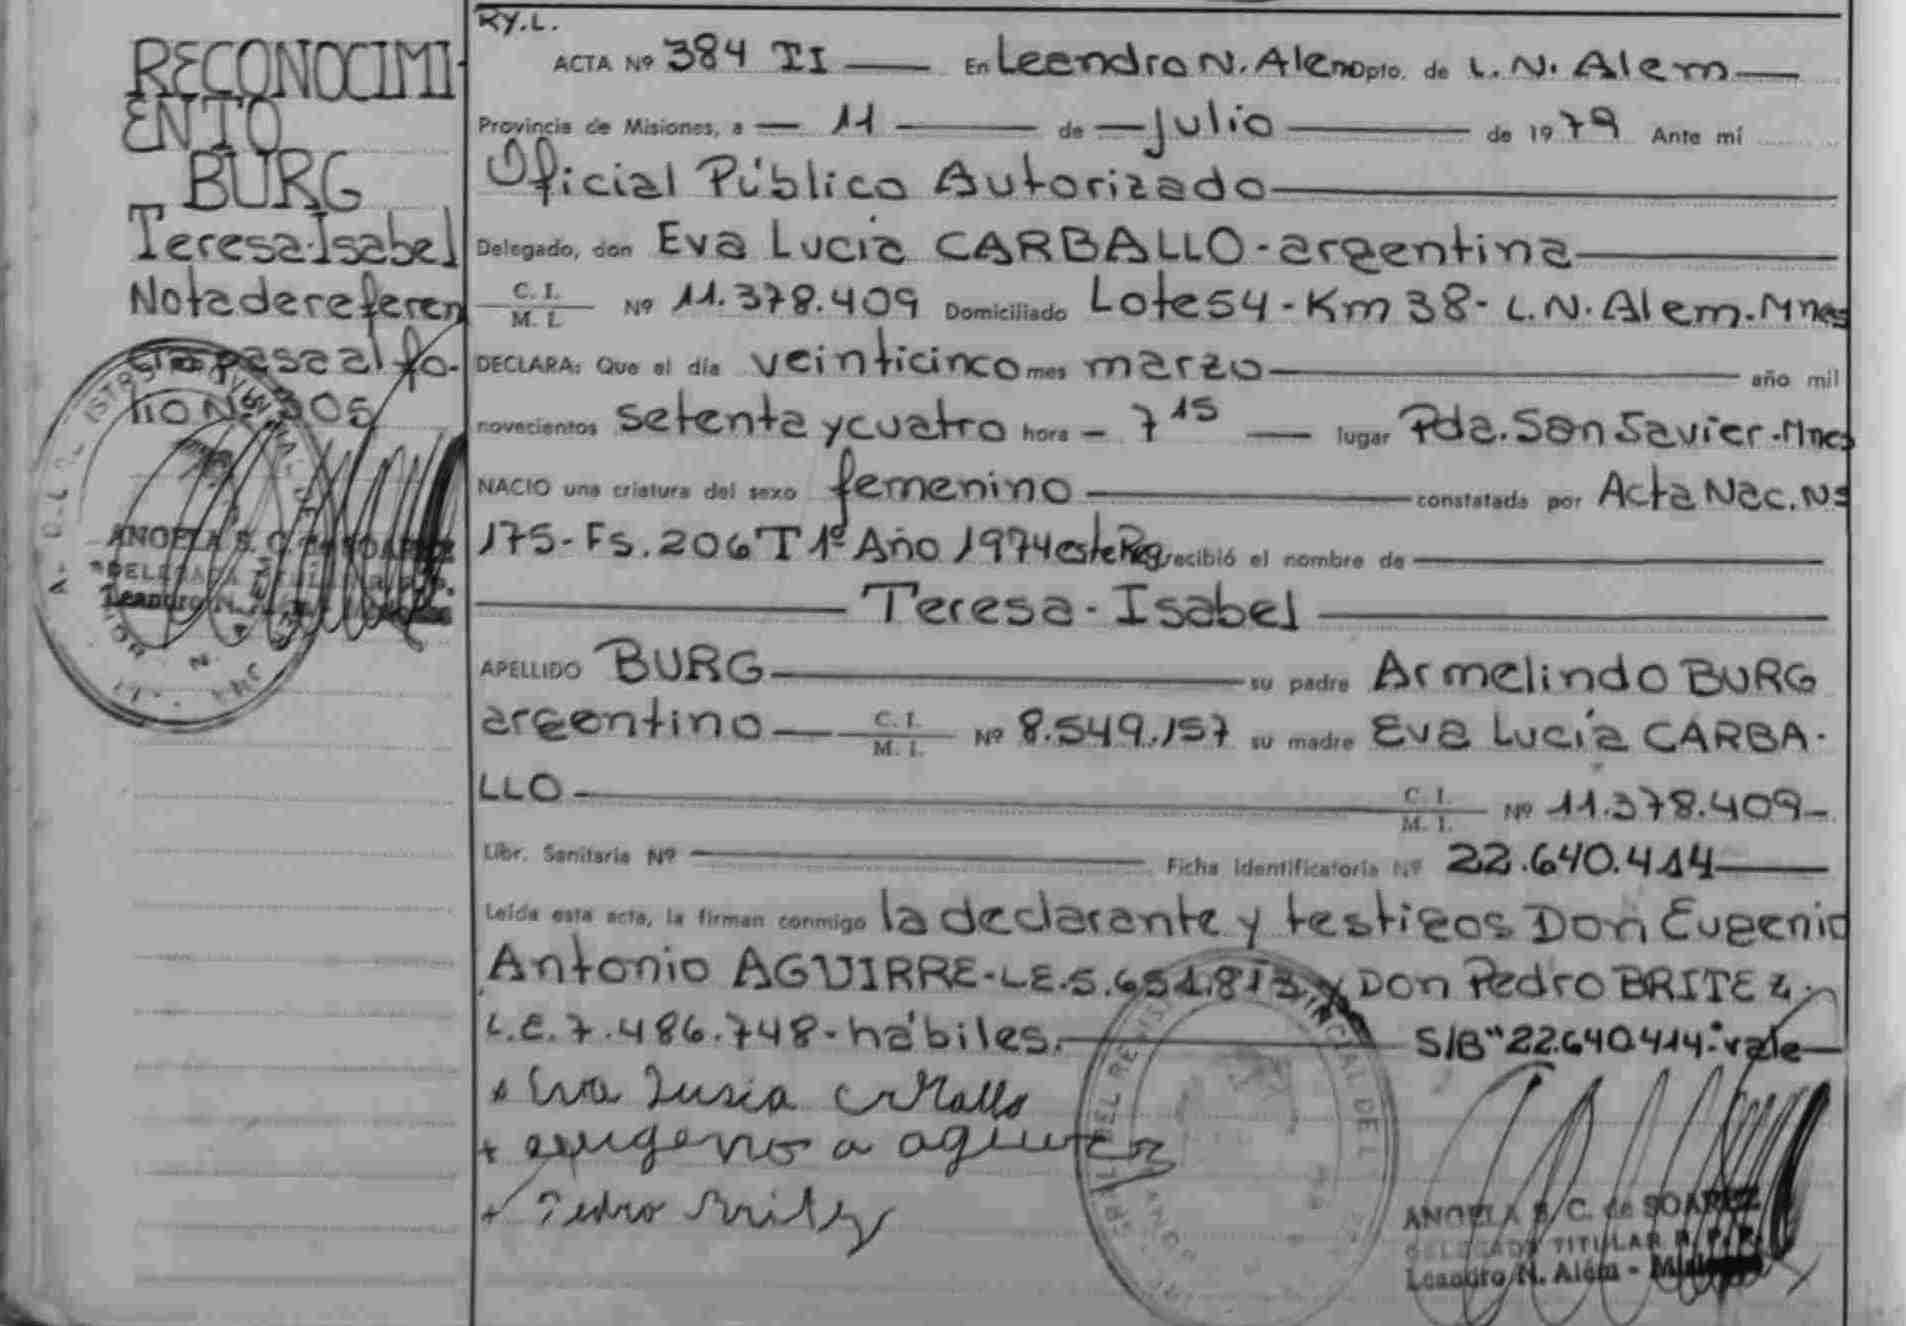 RECONOCIMI-
ENTO
BURG
Teresa-Isabel
Nota de referen
cia pasa al fo-
lio Nº 305
ANGELA S. C. de SOAREZ
DELEGADA TITULAR R. P. P.
Leandro N. Alem
RY.L.
ACTA Nº 384 TI — En Leandro N. Alem Dpto. de L. N. Alem —
Provincia de Misiones, a — 11 — de — Julio — de 1979 Ante mí
Oficial Público Autorizado —
Delegado, don Eva Lucía CARBALLO - argentina —
C. I. / M. I. Nº 11.378.409 Domiciliado Lote 54 - Km 38 - L.N. Alem. Mnes
DECLARA: Que el día veinticinco mes marzo — año mil
novecientos setenta y cuatro hora - 7 15 — lugar Pda. San Javier - Mnes
NACIO una criatura del sexo femenino — constatada por Acta Nac. Nº
175 - Fs. 206 T 1º Año 1974 este Reg recibió el nombre de —
— Teresa - Isabel —
APELLIDO BURG — su padre Armelindo BURG
argentino — C. I. / M. I. Nº 8.549.157 su madre Eva Lucía CARBA-
LLO — C. I. / M. I. Nº 11.378.409 -
Libr. Sanitaria Nº — Ficha Identificatoria Nº 22.640.414 —
Leída esta acta, la firman conmigo la declarante y testigos Don Eugenio
Antonio AGUIRRE - LE. 5.651.813 y Don Pedro BRITEZ
L.E. 7.486.748 - hábiles. — S/B "22.640.414": vale —
Eva Lusia Carballo
eugeno a aguirrez
Pedro Britez
ANGELA S. C. de SOAREZ
DELEGADA TITULAR R. P. P.
Leandro N. Alem - Misiones